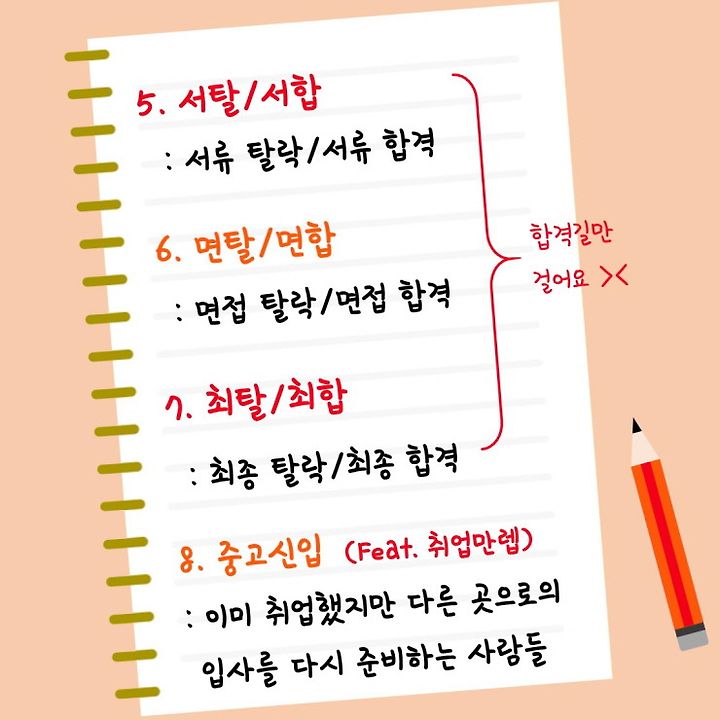 5. 서탈/서합
: 서류 탈락/서류 합격
6. 면탈/면합
: 면접 탈락/면접 합격
합격길만
걸어요 ><
7. 최탈/최합
: 최종 탈락/최종 합격
8. 중고신입 (Feat. 취업만렙)
: 이미 취업했지만 다른 곳으로의
입사를 다시 준비하는 사람들